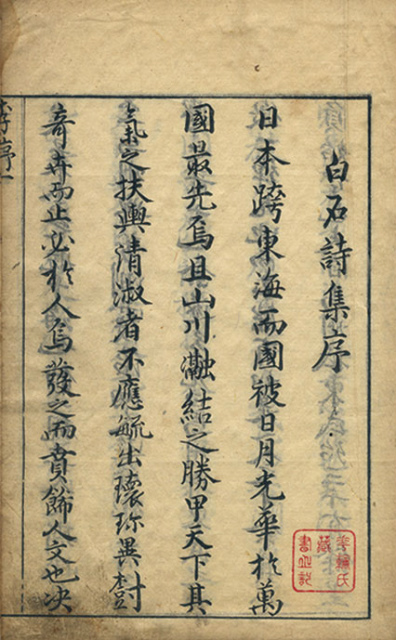 白石詩集序
日本跨東海而國被日月光華於萬
國最先焉且山川瀜結之勝甲天下其
氣之扶輿清淑者不應毓出瓌珎異
奇卉而止必於人焉發之而賁飾人文也决
詩序一